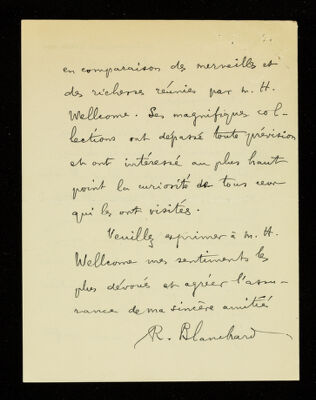 en comparaison des merveilles et
des richesses réunies par M. H.
Wellcome. Ses magnifiques col-
lections ont dépassé toute prévision
et ont intéressé au plus haut
point la curiosité de tous ceux
qui les ont visitées.
Veuillez exprimer à M. H.
Wellcome mes sentiments les
plus dévoués et agréer l'assu-
rance de ma sincère amitié
R. Blanchard